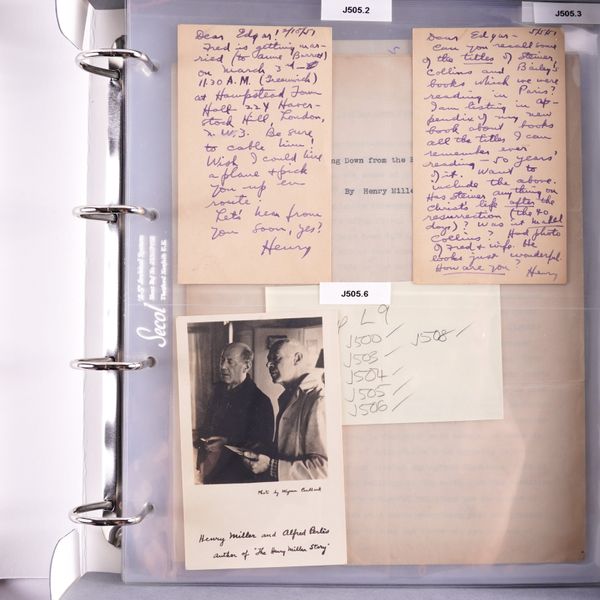 J505.2
J505.3
Dear Edgar! 2/15/51
Fred is getting mar-
ried (to Anne Barret)
on March 3rd
11:30 A.M. (Greenwich)
at Hampstead Town
Hall - 224 Haver-
stock Hill, London,
N.W.3. Be sure
to cable him!
Wish I could hire
a plane & pick
you up en
route!
Let's hear from
you soon, yes?
Henry
Dear Edgar -
Can you recall some
of the titles of Steiner,
Collins and Bailey's
books which we were
reading in Paris?
I am listing in ap-
pendix of my new
book about books
all the titles I can
remember ever
reading - 50 years
of it. Want to
include the above.
Has Steiner anything on
Christ's life after the
resurrection (the 40
days)? Was it Mabel
Collins? Had photo
of Fred & wife. He
looks just wonderful.
How are you? Henry
ng Down from the
By Henry Mille
J505.6
L9
J500 J508
J503
J504
J505
J506
Secol
Photo by
Henry Miller and Alfred Perlès
author of "The Henry Miller Story"